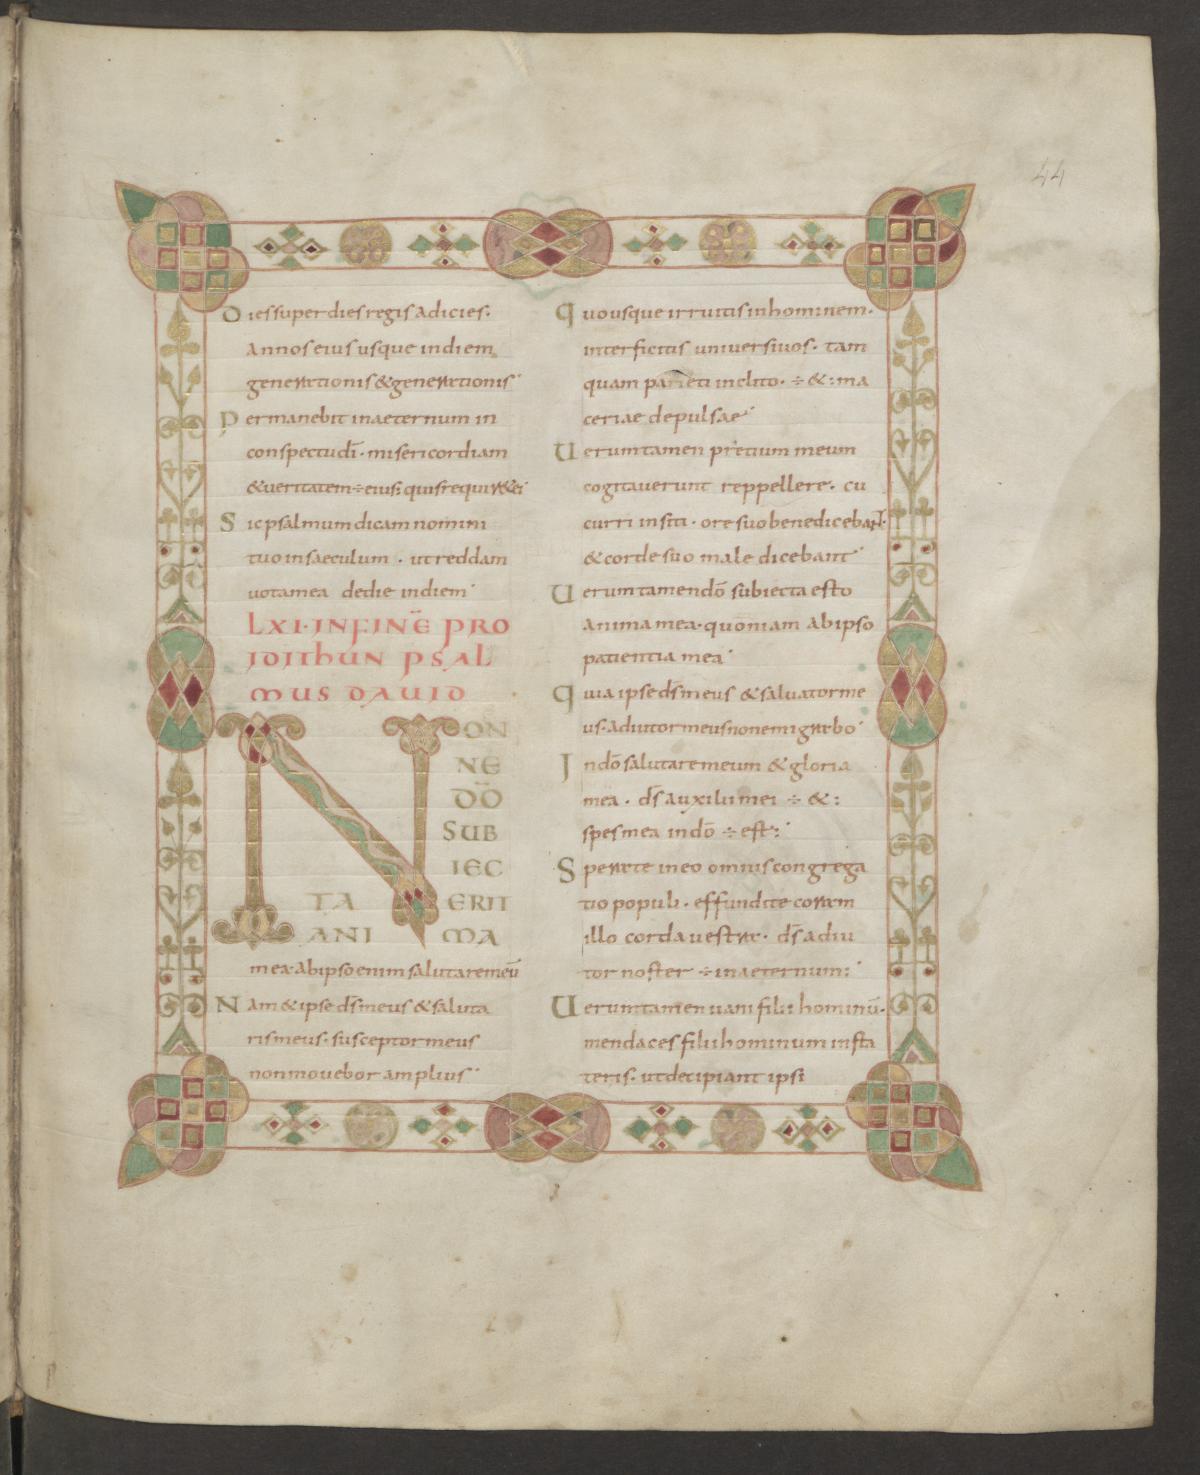 44
Dies super dies regis adicies.
annos eius usque indiem
generationis & generationis
Permanebit inaeternum in
conspectu dī. misericordiam
& veritatem ÷ eius: quis requir& ei
Sic psalmum dicam nomini
tuo in saeculum. ut reddam
uota mea dedie indiem
LXI. IN FINĒ PRO
IDITHUN PSAL
MUS DAVID
NON
NE
DŌ
SUB
IEC
TA ERIT
ANI MA
mea. Ab ipso enim salutare meū
Nam & ipse dſ meus & saluta
ris meus. susceptor meus
non movebor amplius
Quousque irruitis in hominem.
interficitis universi uos. tam
quam parieti inclito. ÷ &: ma
ceriae depulsae
Uerumtamen pretium meum
cogitaverunt reppellere. cu
curri in siti. ore suo benedicebant.
& corde suo male dicebant
Uerumtamen dō subiecta esto
anima mea. quoniam ab ipso
patientia mea
Quia ipse dſ meus & salvator me
us. adiutor meus non emigrabo
In dō salutare meum & gloria
mea. dſ auxilii mei ÷ &:
spes mea in dō ÷ est:
Sperate in eo omnis congrega
tio populi. effundite coram
illo corda uestra. dſ adiu
tor noster ÷ inaeternum:
Uerumtamen uani filii hominū.
mendaces filii hominum insta
teris. ut decipiant ipsi